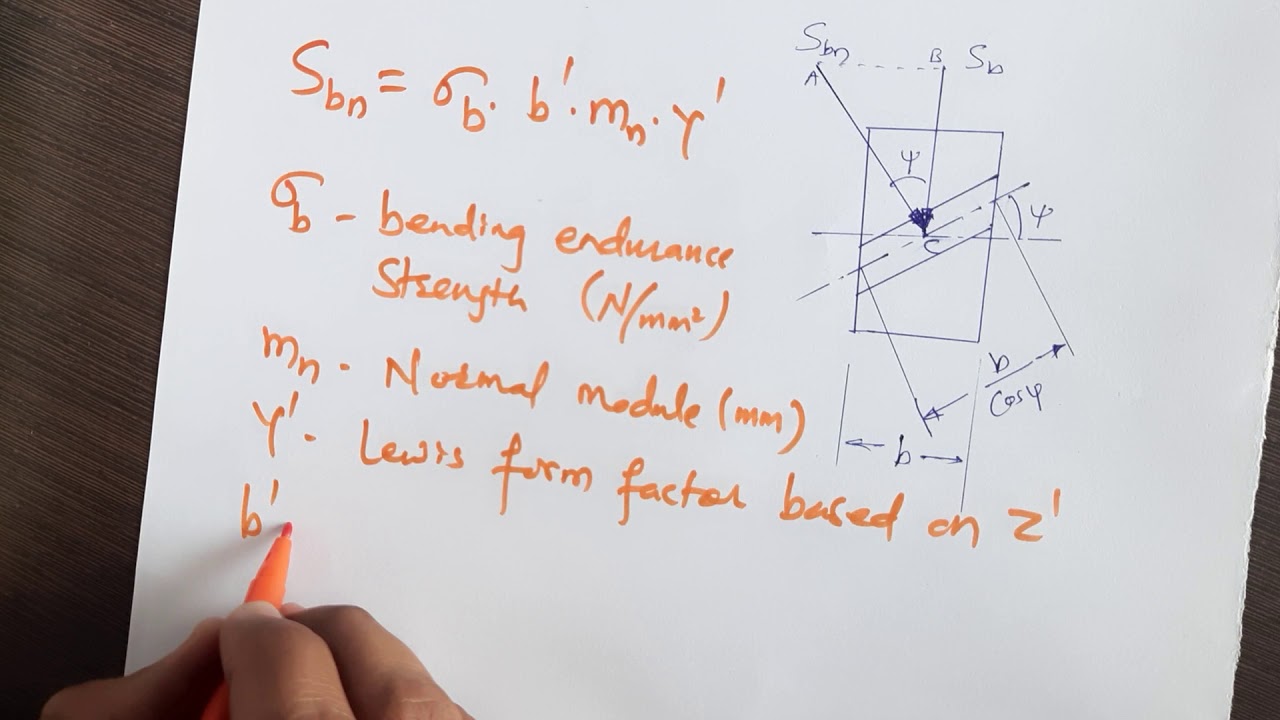 S_bn = σ_b · b' · m_n · Y'
σ_b - bending endurance
Strength (N/mm²)
m_n - Normal module (mm)
Y' - Lewis form factor based on z'
b'
S_bn
A
B
S_b
ψ
ψ
C
b
cosψ
b